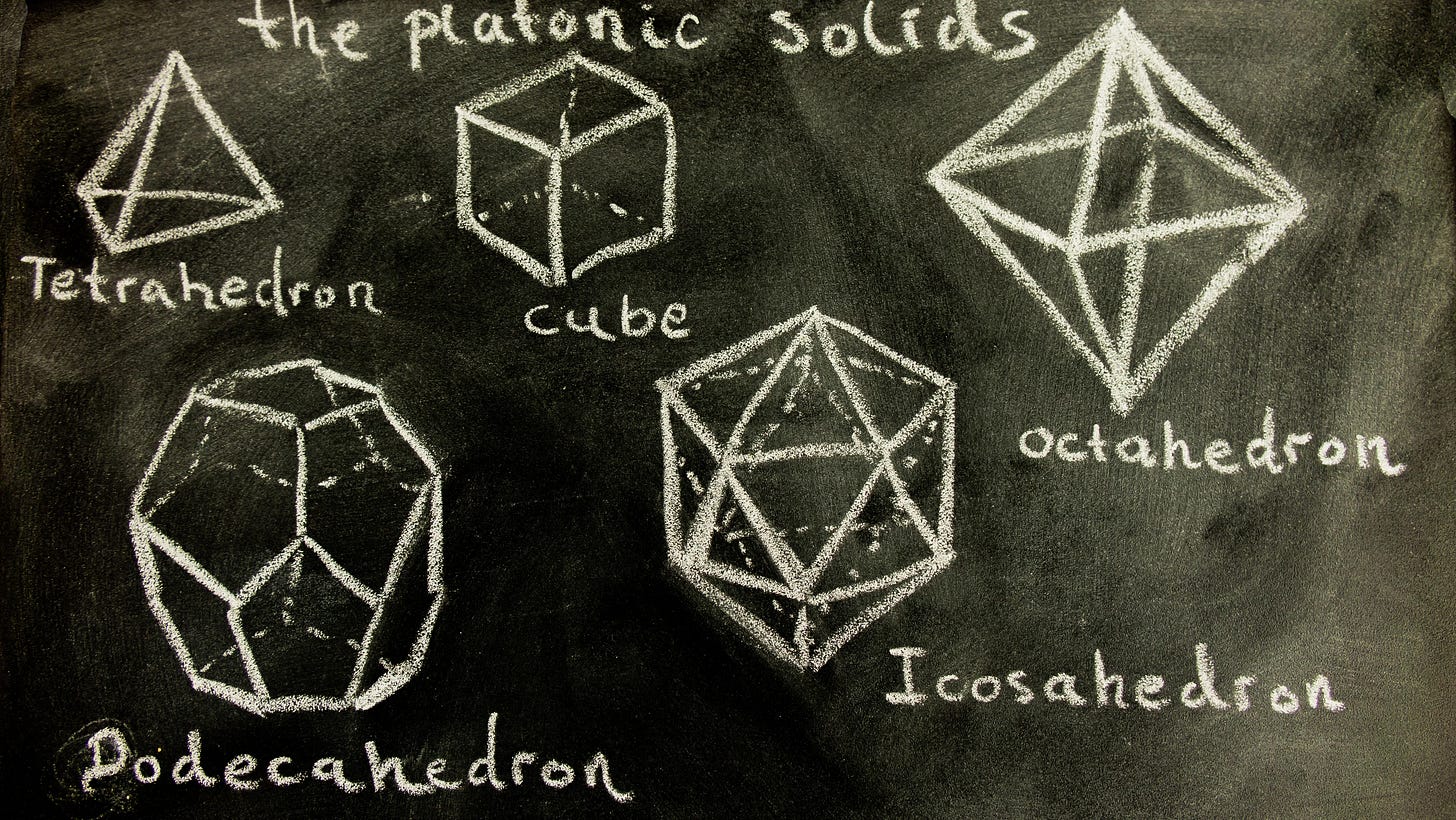 the platonic solids
Tetrahedron
cube
octahedron
Dodecahedron
Icosahedron